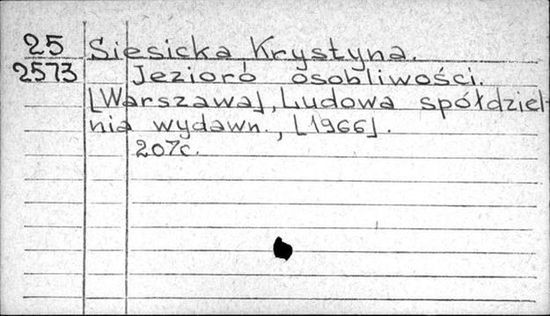 25 Siesicka Krystyna.
2573 Jezioró osobliwości.
[Warszawa], Ludowa spółdziel-
nia wydawn., [1966].
207c.